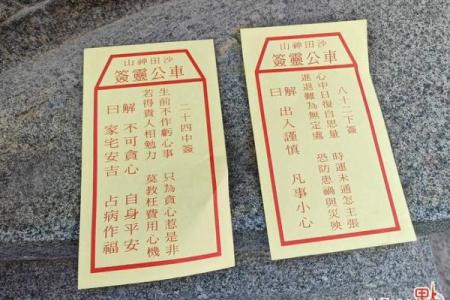 沙田神山
車公靈簽
二十四中簽
生前不作虧心事 只為貪心惹是非
若得貴人相勉力 莫教枉費用心機
解 不可貪心 自身平安
曰 家宅安吉 占病作福
沙田神山
車公靈簽
八十二下簽
心中日復自思量 時運未通怎主張
進退難為無定處 恐防患禍與災殃
解曰 出入謹慎 凡事小心